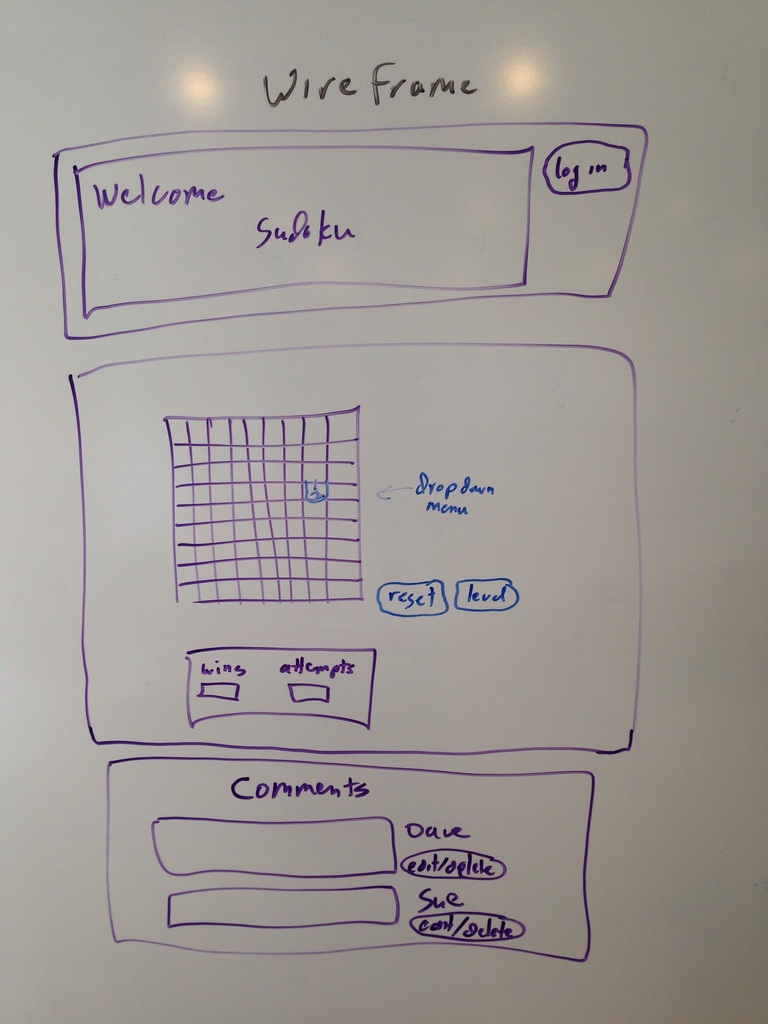 Wireframe
Welcome
log in
Sudoku
dropdown
menu
reset
level
wins
attempts
Comments
Dave
edit/delete
Sue
edit/delete